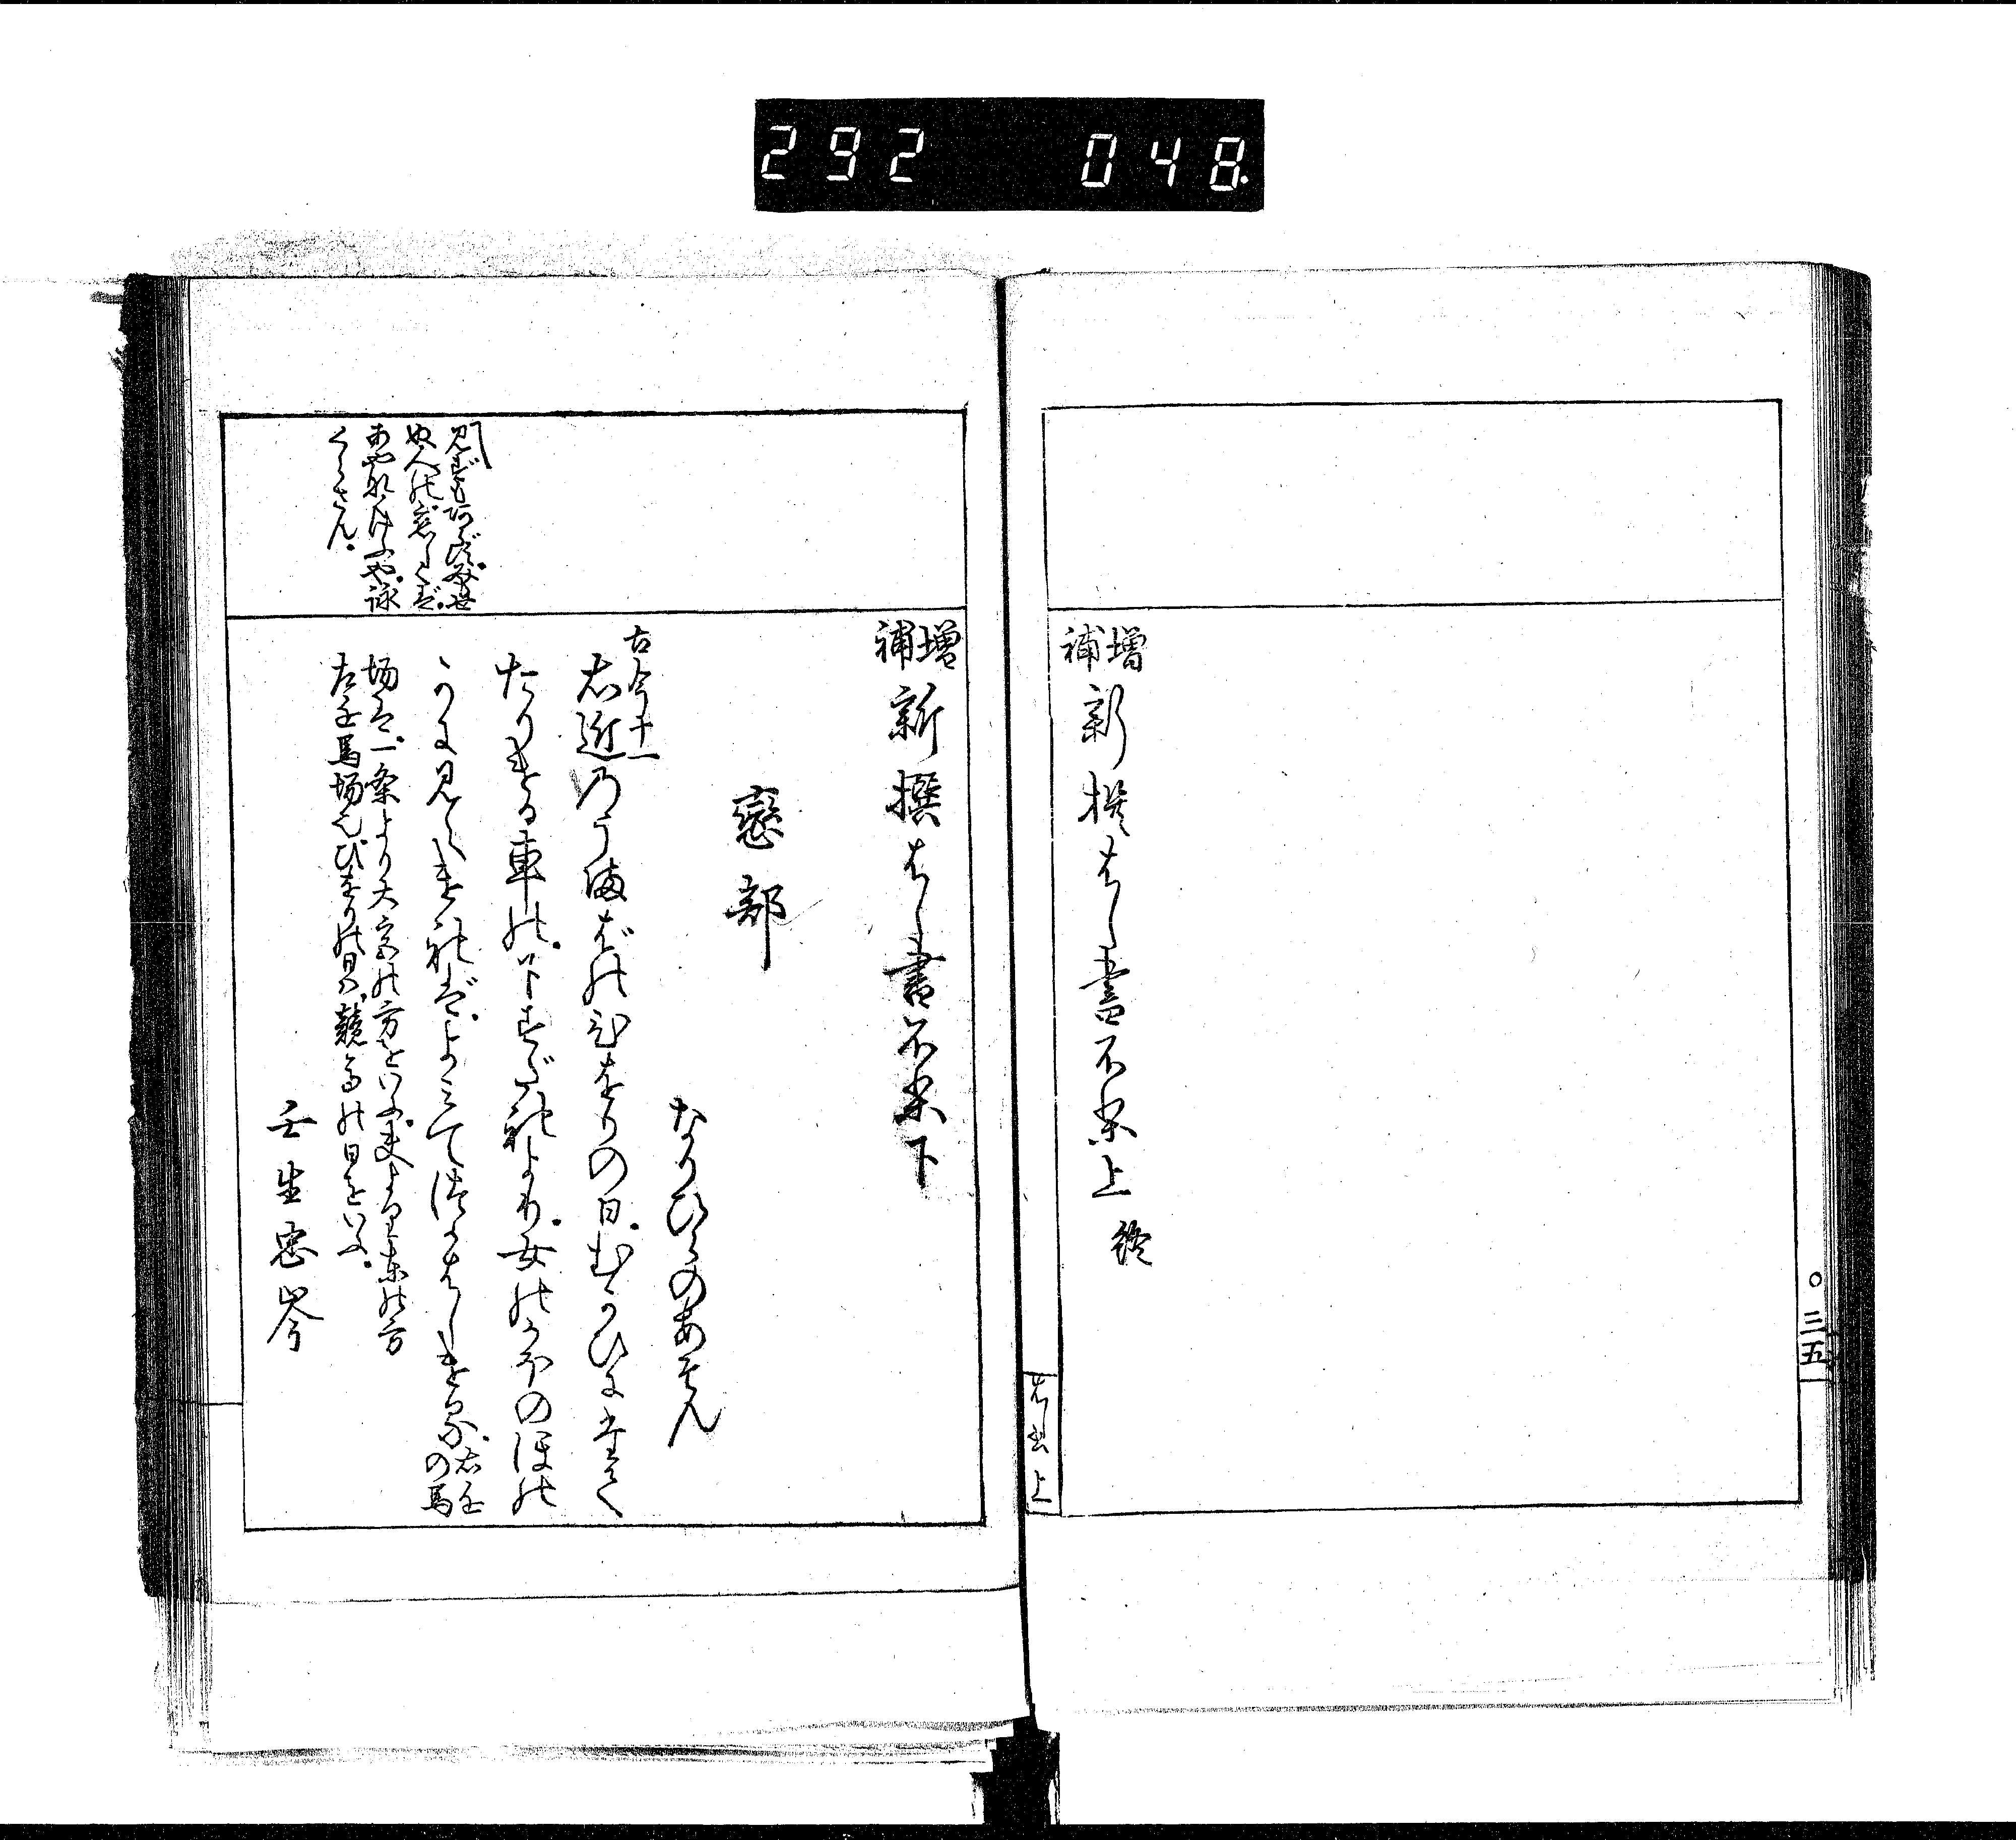 292 048
増補 新撰はし書不尽上 終
○三五
はし書上
増補 新撰はし書不尽下
戀部
なりひらのあそん
古今十一
右近のうまばのひをりの日。むかひにたて
たりける車の。下すだれより。女のかほのほの
かに見えければ。よみてつかはしける。右近の馬
場は。一条より大宮の方をいふ。夫より東の方
左近馬場也。ひをりの日は。競馬の日をいふ。
壬生忠岑
見ずもあらず。みもせ
ぬ人の恋しくば。
あやなくけふや。詠
くらさん。